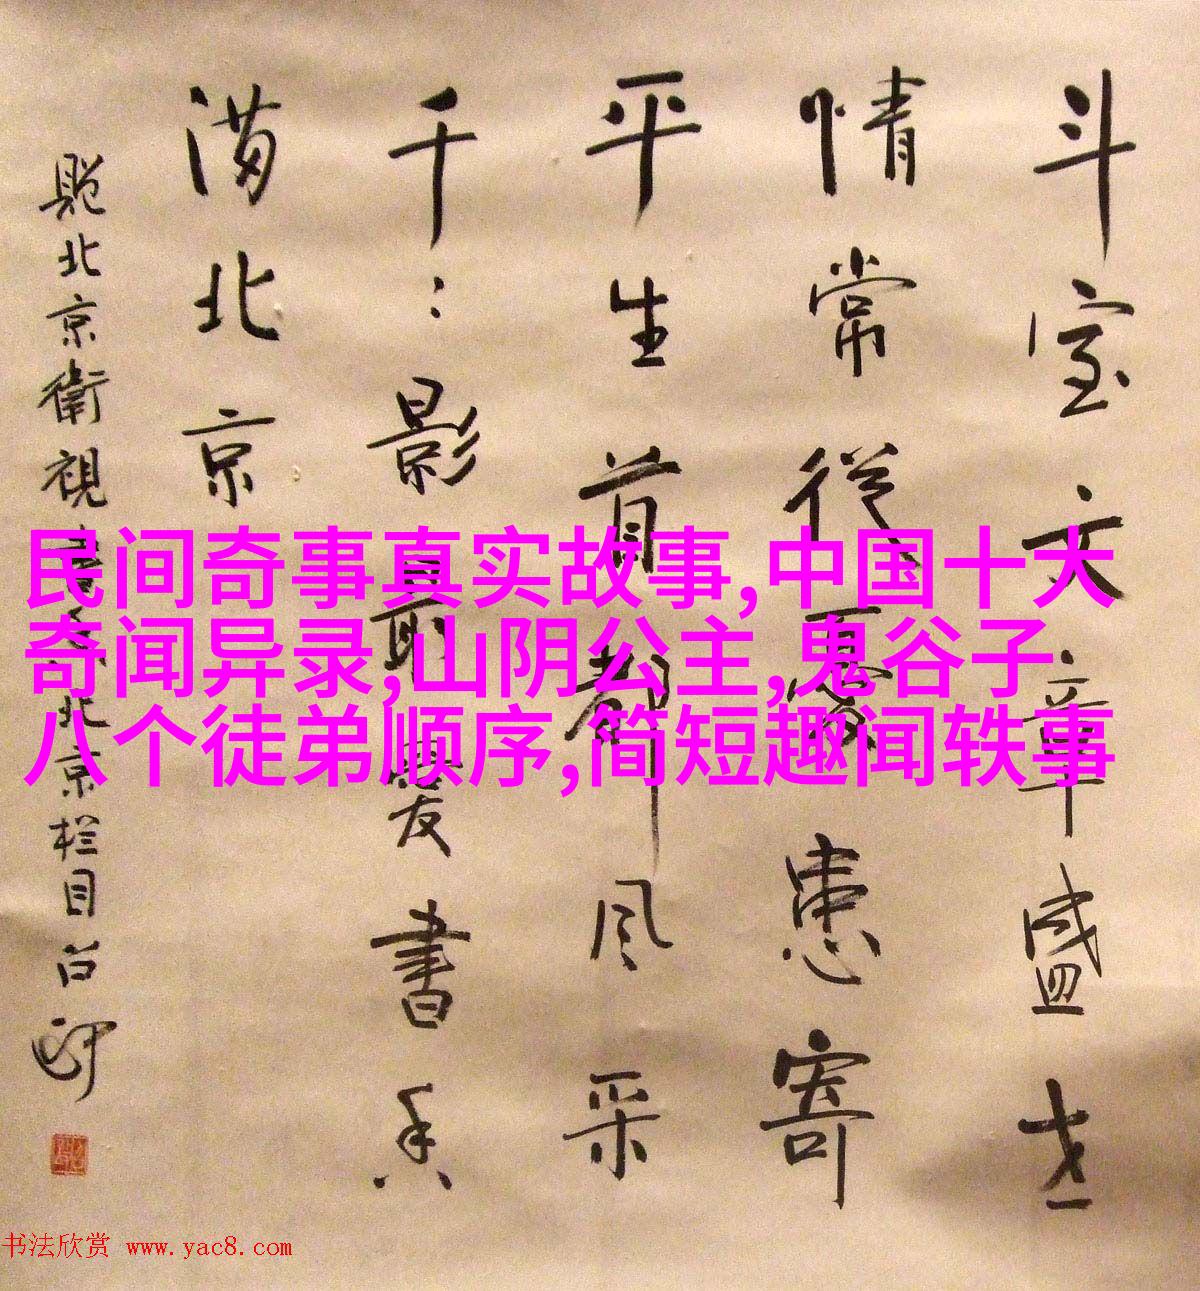 斗室文章盛世
情常從憂患寄
平生首都风采
千〻影最愛書香
满北京
題北京衛視書香北京栏目
民间奇事真实故事,中国十大
奇闻异录,山阴公主,鬼谷子
八个徒弟顺序,简短趣闻轶事
书法欣赏 www.yac8.com